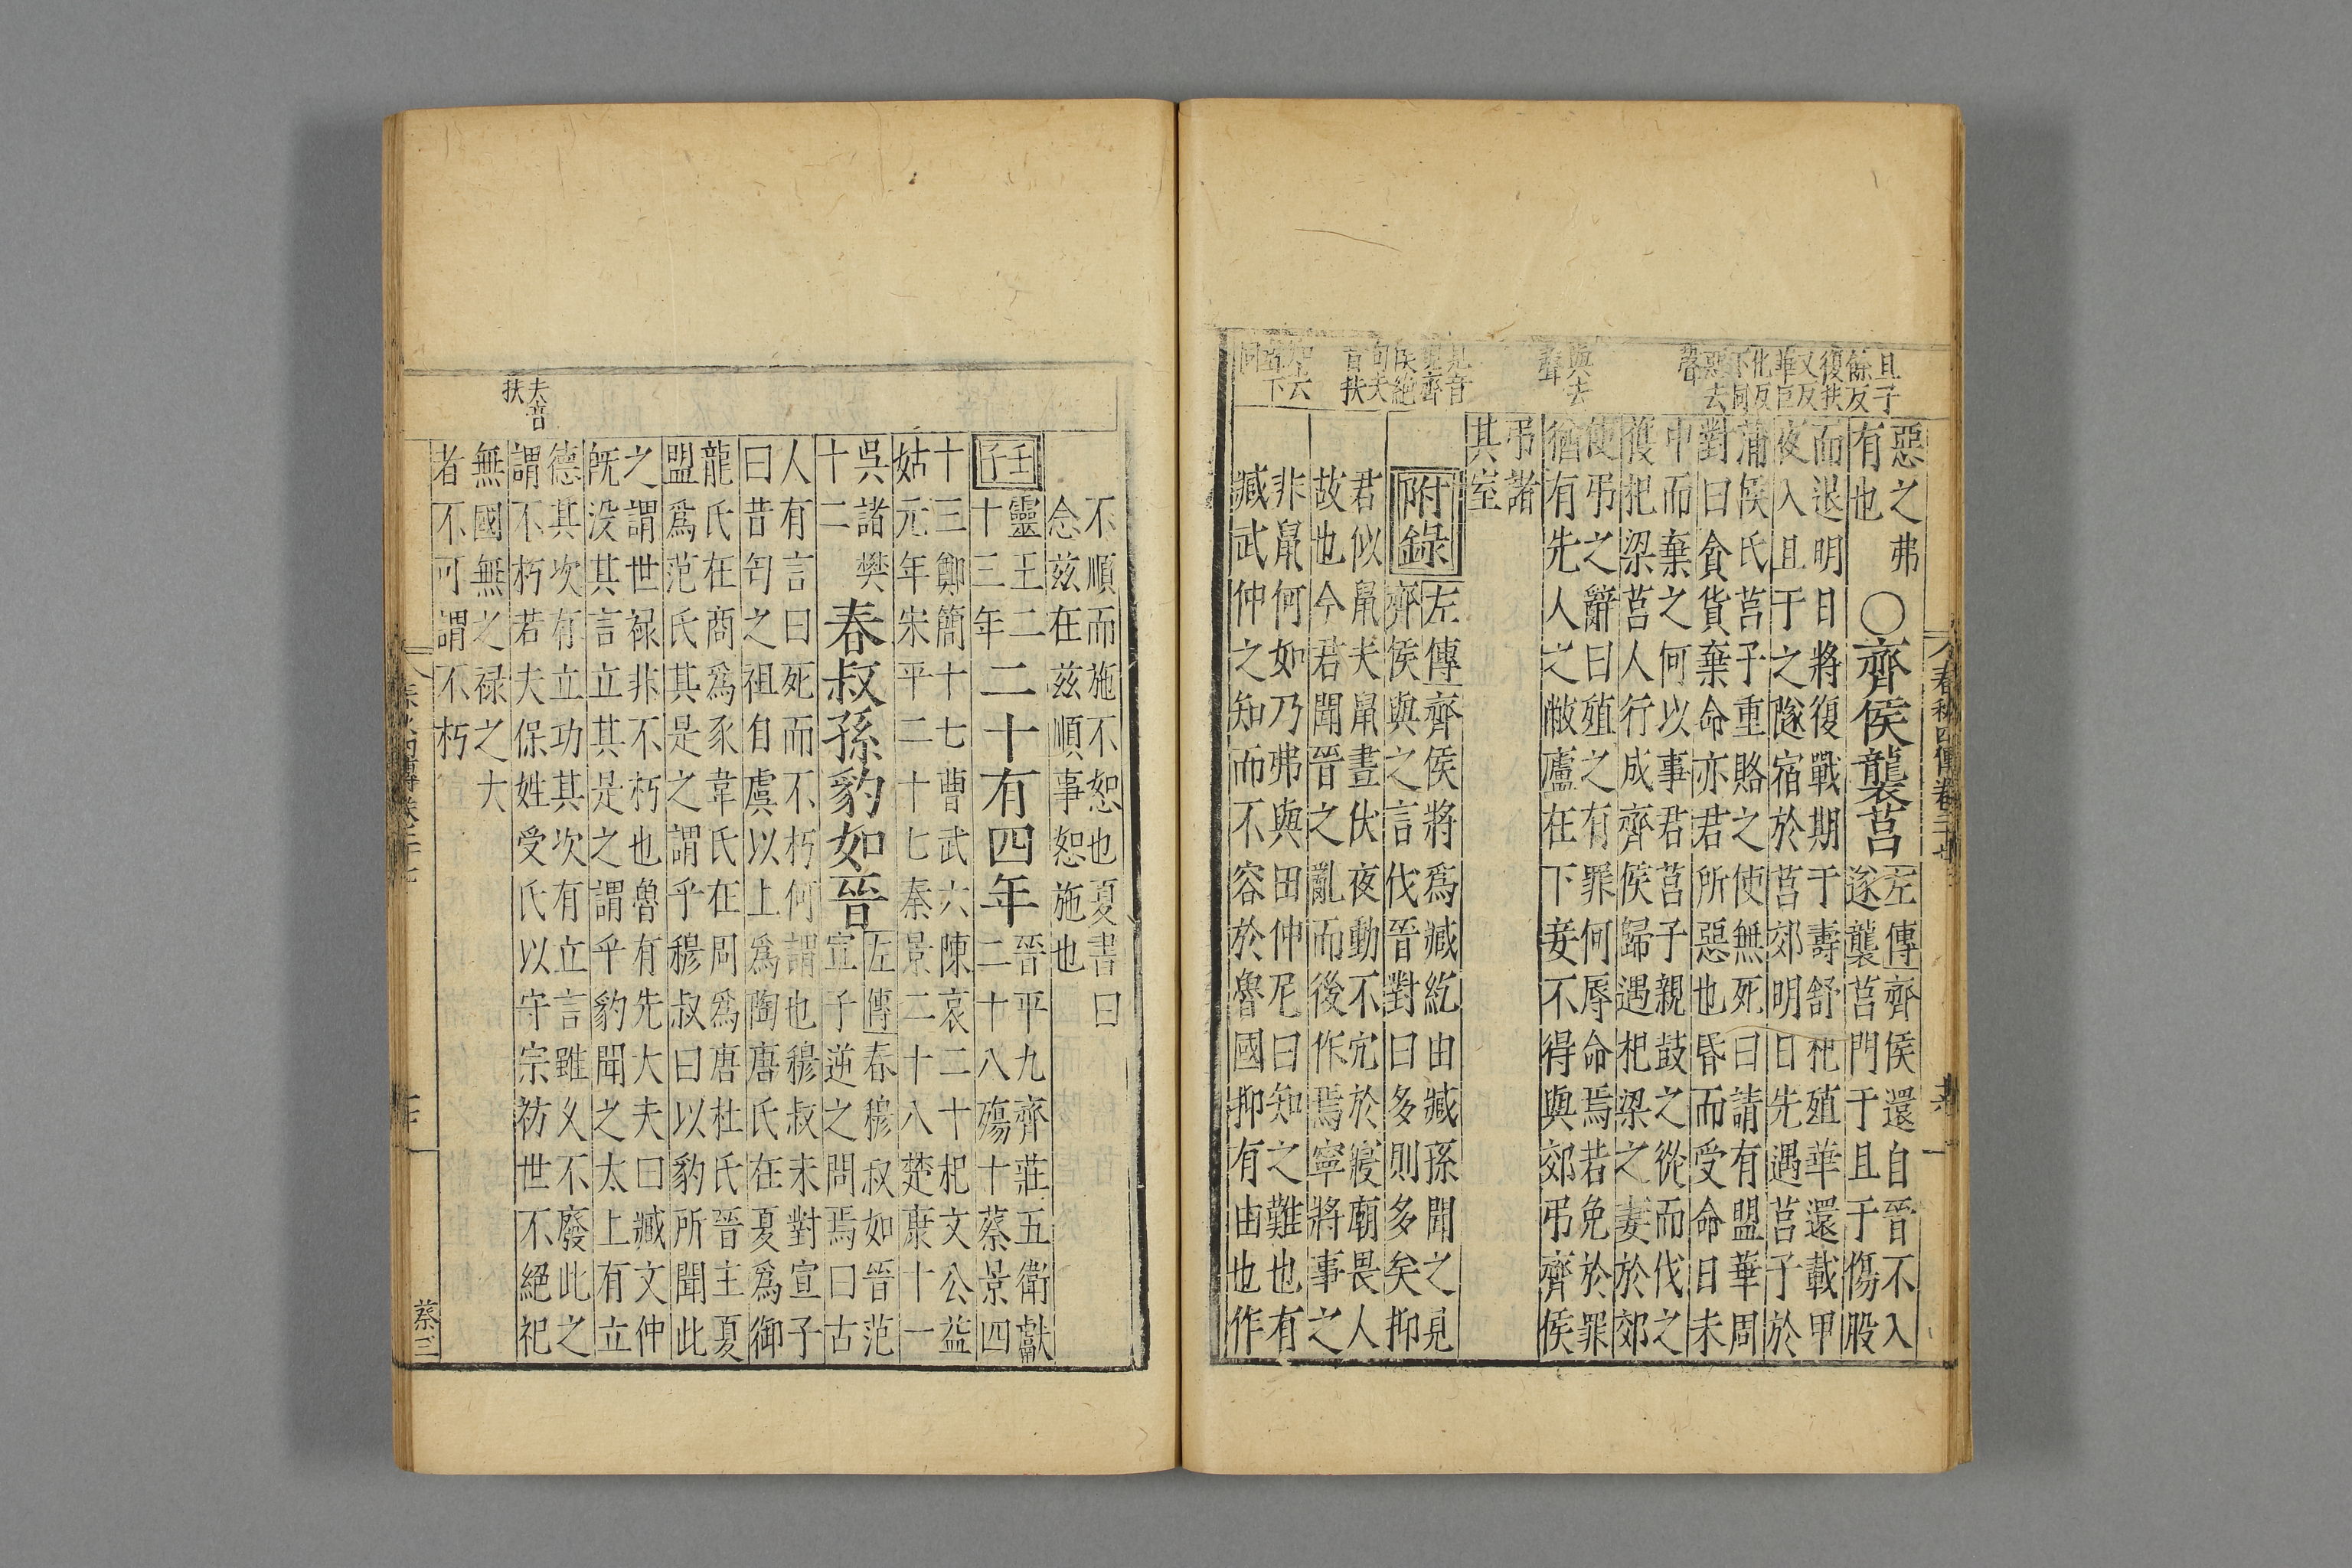 且子
餘反
復扶
又反
華巨
化反
下同
惡去
聲
與去
聲
見音
現齊
侯絕
句夫
音扶
春秋四傳卷二十七
惡之弗
有也
○齊侯襲莒
左傳齊侯還自晉不入
遂襲莒門于且于傷股
而退明日將復戰期于壽舒杞殖華還載甲
夜入且于之隧宿於莒郊明日先遇莒子於
蒲侯氏莒子重賂之使無死曰請有盟華周
對曰貪貨棄命亦君所惡也昏而受命日未
中而棄之何以事君莒子親鼓之從而伐之
獲杞梁莒人行成齊侯歸遇杞梁之妻於郊
使弔之辭曰殖之有罪何辱命焉若免於罪
猶有先人之敝廬在下妾不得與郊弔齊侯
弔諸
其室
附錄
左傳齊侯將爲臧紇由臧孫聞之見
齊侯與之言伐晉對曰多則多矣抑
君似鼠夫鼠晝伏夜動不穴於寢廟畏人
故也今君聞晉之亂而後作焉寧將事之
非鼠何如乃弗與田仲尼曰知之難也有
臧武仲之知而不容於魯國抑有由也作
夫音
扶
不順而施不恕也夏書曰
念兹在兹順事恕施也
壬子
靈王二
十三年
二十有四年
晉平九齊莊五衛獻
二十八殤十蔡景四
十三鄭簡十七曹武六陳哀二十杞文公益
姑元年宋平二十七秦景二十八楚康十一
吳諸樊
十二
春叔孫豹如晉
左傳春穆叔如晉范
宣子逆之問焉曰古
人有言曰死而不朽何謂也穆叔未對宣子
曰昔匄之祖自虞以上爲陶唐氏在夏爲御
龍氏在商爲豕韋氏在周爲唐杜氏晉主夏
盟爲范氏其是之謂乎穆叔曰以豹所聞此
之謂世禄非不朽也魯有先大夫曰臧文仲
既没其言立其是之謂乎豹聞之太上有立
德其次有立功其次有立言雖乆不廢此之
謂不朽若夫保姓受氏以守宗祊世不絕祀
無國無之禄之大
者不可謂不朽
蔡三